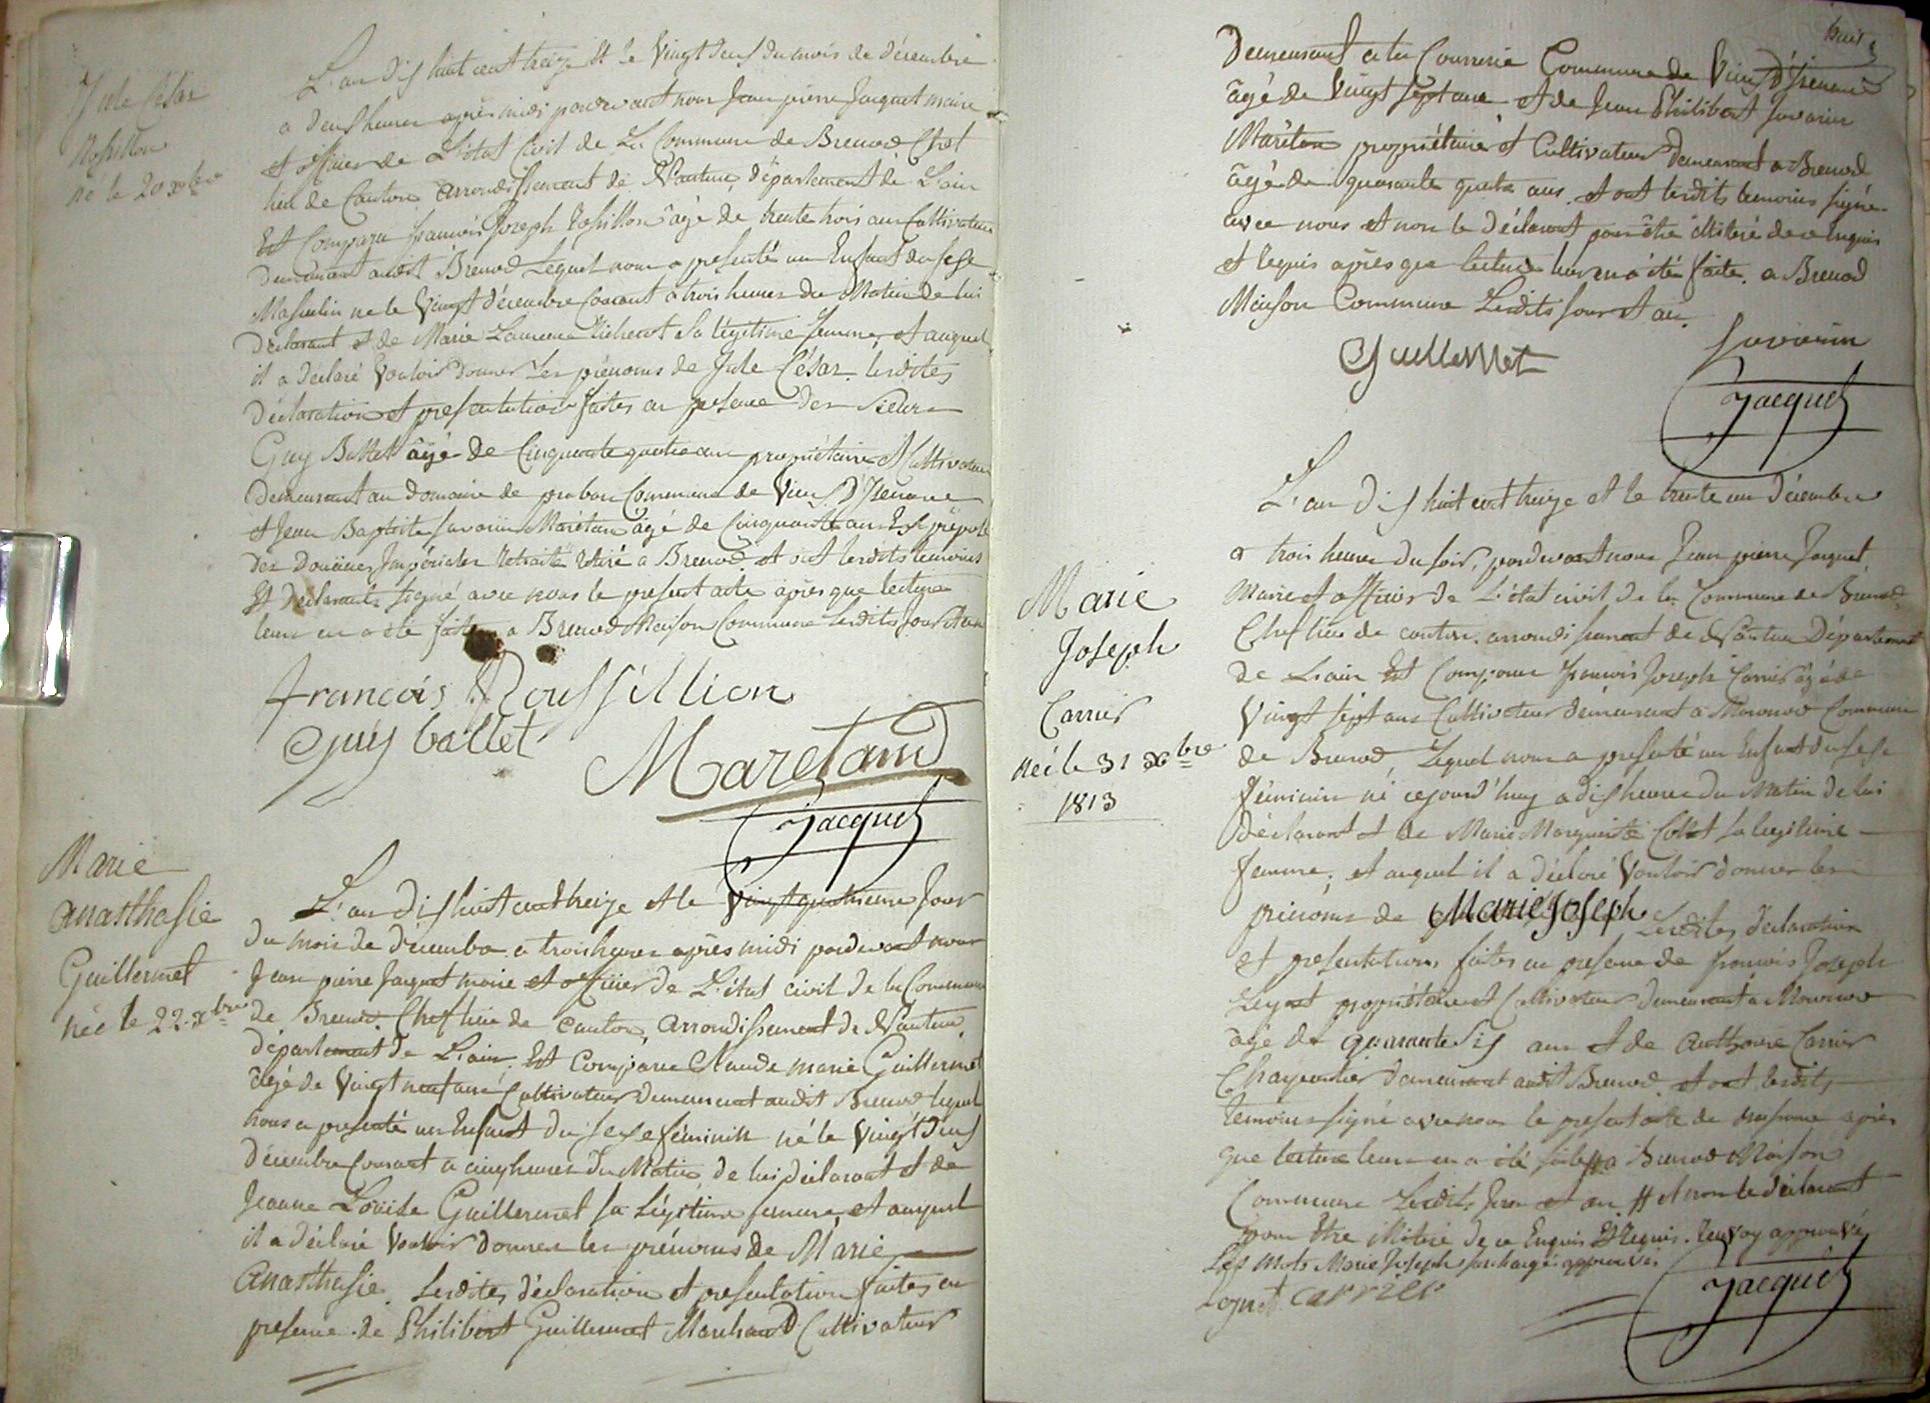 Jule César
Rossillon
né le 20 xbre
L'an dis huit cent treize Et le Vingt deux du mois de décembre
a deux heures après midi pardevant nous Jean pierre Jacquet maire
et officier de L'état Civil de La Commune de Brenod Chef
lieu de Canton arrondissement de Nantua, département de L'ain
Est Comparu francois Joseph Rossillon âgé de trente trois ans Cultivateur
demeurant audit Brenod Lequel nous a presenté un Enfant du sexe
Masculin né le Vingt décembre Courant a trois heures du Matin de lui
déclarant et de Marie Laurence sa légitime femme, et auquel
il a déclaré Vouloir donner Les prénoms de Jule César. lesdites
déclaration et presentation faites en presence des Sieurs
Guy Ballet âgé de Cinquante quatre ans propriétaire et Cultivateur
demeurant au domaine de Commune de Vieu D'Izenave
et Jean Baptiste Savarin Marétan âgé de Cinquante ans Ex préposé
des Douanes Impériales Retraité retiré a Brenod et ont lesdits temoins
Et déclarant signé avec nous le present acte après que lecture
leur en a été faite a Brenod Maison Commune Lesdits Jour et an
francois Roussillion
Guy ballet
Maretand
Jacquet
Marie
anasthasie
Guillermet
née le 22 xbre
L'an dis huit cent treize et le Vingt quatrieme Jour
du mois de décembre a trois heures après midi pardevant nous
Jean pierre Jacquet maire et officier de L'état civil de la Commune
de Brenod Chef lieu de canton, arrondissement de Nantua,
département de L'ain. Est Comparu Claude marie Guillermet
âgé de Vingt neuf ans Cultivateur demeurant audit Brenod lequel
nous a presenté un Enfant du sexe féminin né le Vingt deux
décembre Courant a cinq heures du Matin, de lui déclarant et de
Jeanne Louise Guillermet sa Légitime femme, et auquel
il a déclaré Vouloir donner les prénoms de Marie
Anasthasie. Lesdites déclaration et presentation faites en
presence de Philibert Guillermet Marchand Cultivateur
huit
Demeurant a la Commune de Vieu d'Izenave
âgé de Vingt sept ans et de Jean Philibert Savarin
Marétan propriétaire et Cultivateur demeurant a Brenod
âgé de quarante quatre ans. et ont lesdits temoins signé
avec nous et non le déclarant pour être illitéré de ce enquis
et requis après que lecture leur en a été faite. a Brenod
Maison Commune Lesdits Jour et an.
Guillermet
Savarin
Jacquet
Marie
Joseph
Carrier
née le 31 xbre
1813
L'an dis huit cent treize et le trente un décembre
a trois heures du soir, pardevant nous Jean pierre Jacquet
Maire et officier de L'état civil de la Commune de Brenod,
Chef lieu de canton. arrondissement de Nantua Département
de L'ain Est Comparu francois Joseph Carrier âgé de
Vingt sept ans Cultivateur demeurant a Commune
de Brenod, Lequel nous a presenté un Enfant du sexe
féminin né cejourd'huy a dis heures du Matin de lui
déclarant et de Marie Marguerite Collet sa Legitime
femme, et auquel il a déclaré Vouloir donner les
prénoms de Marie Joseph Lesdites déclaration
et presentation, faites en presence de francois Joseph
propriétaire et Cultivateur demeurant a
âgé de quarante six ans et de Anthoine Carrier
Charpentier demeurant audit Brenod et ont lesdits
temoins signé avec nous le present acte de naissance après
que lecture leur en a été faite # a Brenod Maison
Commune Lesdits Jour et an # et non le déclarant
pour Etre illitéré de ce Enquis Et Requis. Renvoy approuvé
Les mots Marie Joseph surchargés approuvés
carrier
Jacquet